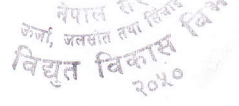 नेपाल
ऊर्जा, जलस्रोत तथा सिंचाइ
विद्युत विकास
२०५०